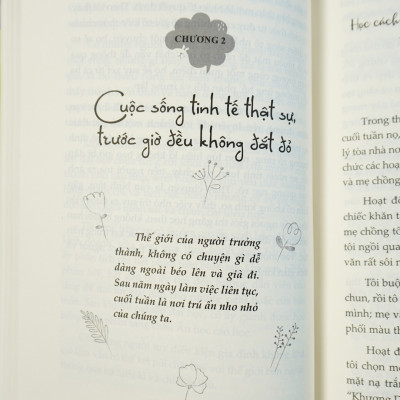 CHƯƠNG 2
Cuộc sống tinh tế thật sự,
trước giờ đều không đắt đỏ
Thế giới của người trưởng
thành, không có chuyện gì dễ
dàng ngoài béo lên và già đi.
Sau năm ngày làm việc liên tục,
cuối tuần là nơi trú ẩn nho nhỏ
của chúng ta.
Học cách
Trong th
cuối tuần nọ,
lý tòa nhà nơ
chức các hoạt
và mẹ chồng
Hoạt đó
chiếc khăn t
mẹ chồng tô
tôi ngồi qua
văn rất sôi n
Tôi buộ
chun, rồi tô
mình; mẹ v
phối màu th
Hoạt đ
tôi chọn mó
mặt nạ trắ
"Khương D